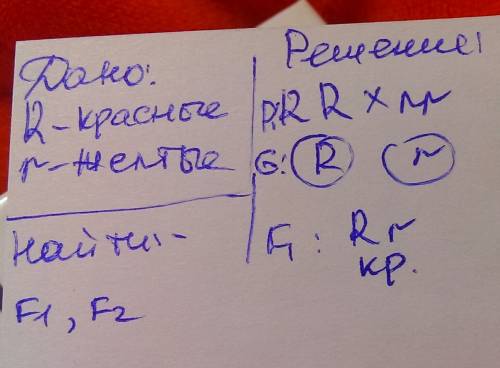 Дано:
R - красные
r - желтые
Найти: -
F1, F2
Решение:
P: RR × rr
G: R r
F1: Rr
кр.